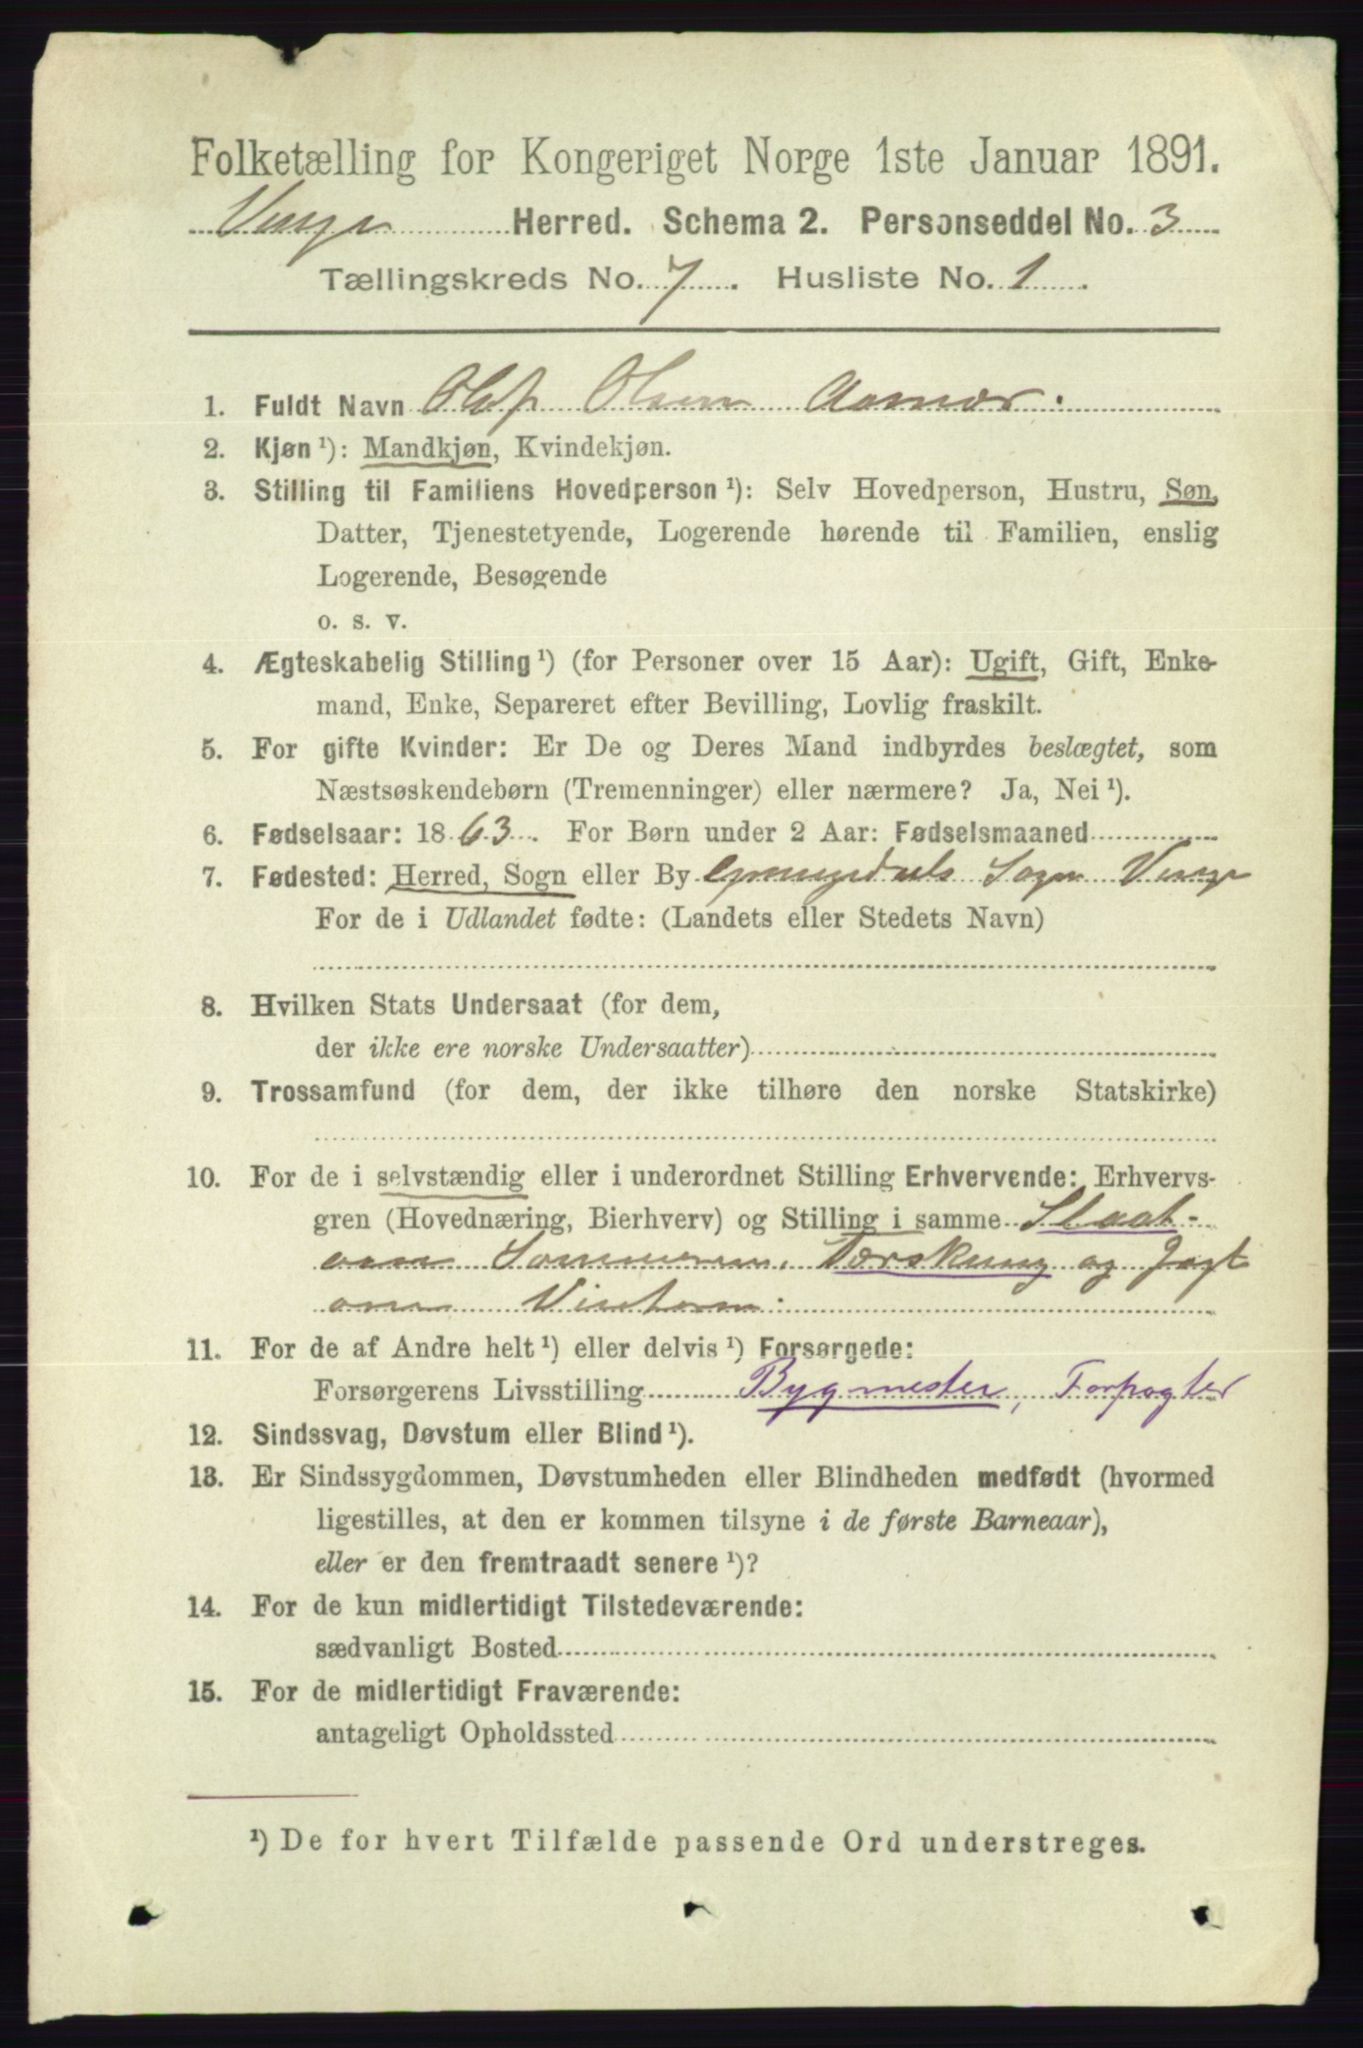 Folketælling for Kongeriget Norge 1ste Januar 1891.
Vinje Herred. Schema 2. Personseddel No. 3
Tællingskreds No. 7. Husliste No. 1.
1. Fuldt Navn Olaf Olsen
2. Kjøn ¹): Mandkjøn, Kvindekjøn.
3. Stilling til Familiens Hovedperson ¹): Selv Hovedperson, Hustru, Søn,
Datter, Tjenestetyende, Logerende hørende til Familien, enslig
Logerende, Besøgende
o. s. v.
4. Ægteskabelig Stilling ¹) (for Personer over 15 Aar): Ugift, Gift, Enke-
mand, Enke, Separeret efter Bevilling, Lovlig fraskilt.
5. For gifte Kvinder: Er De og Deres Mand indbyrdes beslægtet, som
Næstsøskendebørn (Tremenninger) eller nærmere? Ja, Nei ¹).
6. Fødselsaar: 1863. For Børn under 2 Aar: Fødselsmaaned
7. Fødested: Herred, Sogn eller By Grungedals Sogn Vinje
For de i Udlandet fødte: (Landets eller Stedets Navn)
8. Hvilken Stats Undersaat (for dem,
der ikke ere norske Undersaatter)
9. Trossamfund (for dem, der ikke tilhøre den norske Statskirke)
10. For de i selvstændig eller i underordnet Stilling Erhvervende: Erhvervs-
gren (Hovednæring, Bierhverv) og Stilling i samme Slaat-
om Sommeren. Tærskning og Jagt
om Vinteren.
11. For de af Andre helt ¹) eller delvis ¹) Forsørgede:
Forsørgerens Livsstilling Bygmester, Forpagter
12. Sindssvag, Døvstum eller Blind ¹).
13. Er Sindssygdommen, Døvstumheden eller Blindheden medfødt (hvormed
ligestilles, at den er kommen tilsyne i de første Barneaar),
eller er den fremtraadt senere ¹)?
14. For de kun midlertidigt Tilstedeværende:
sædvanligt Bosted
15. For de midlertidigt Fraværende:
antageligt Opholdssted
¹) De for hvert Tilfælde passende Ord understreges.